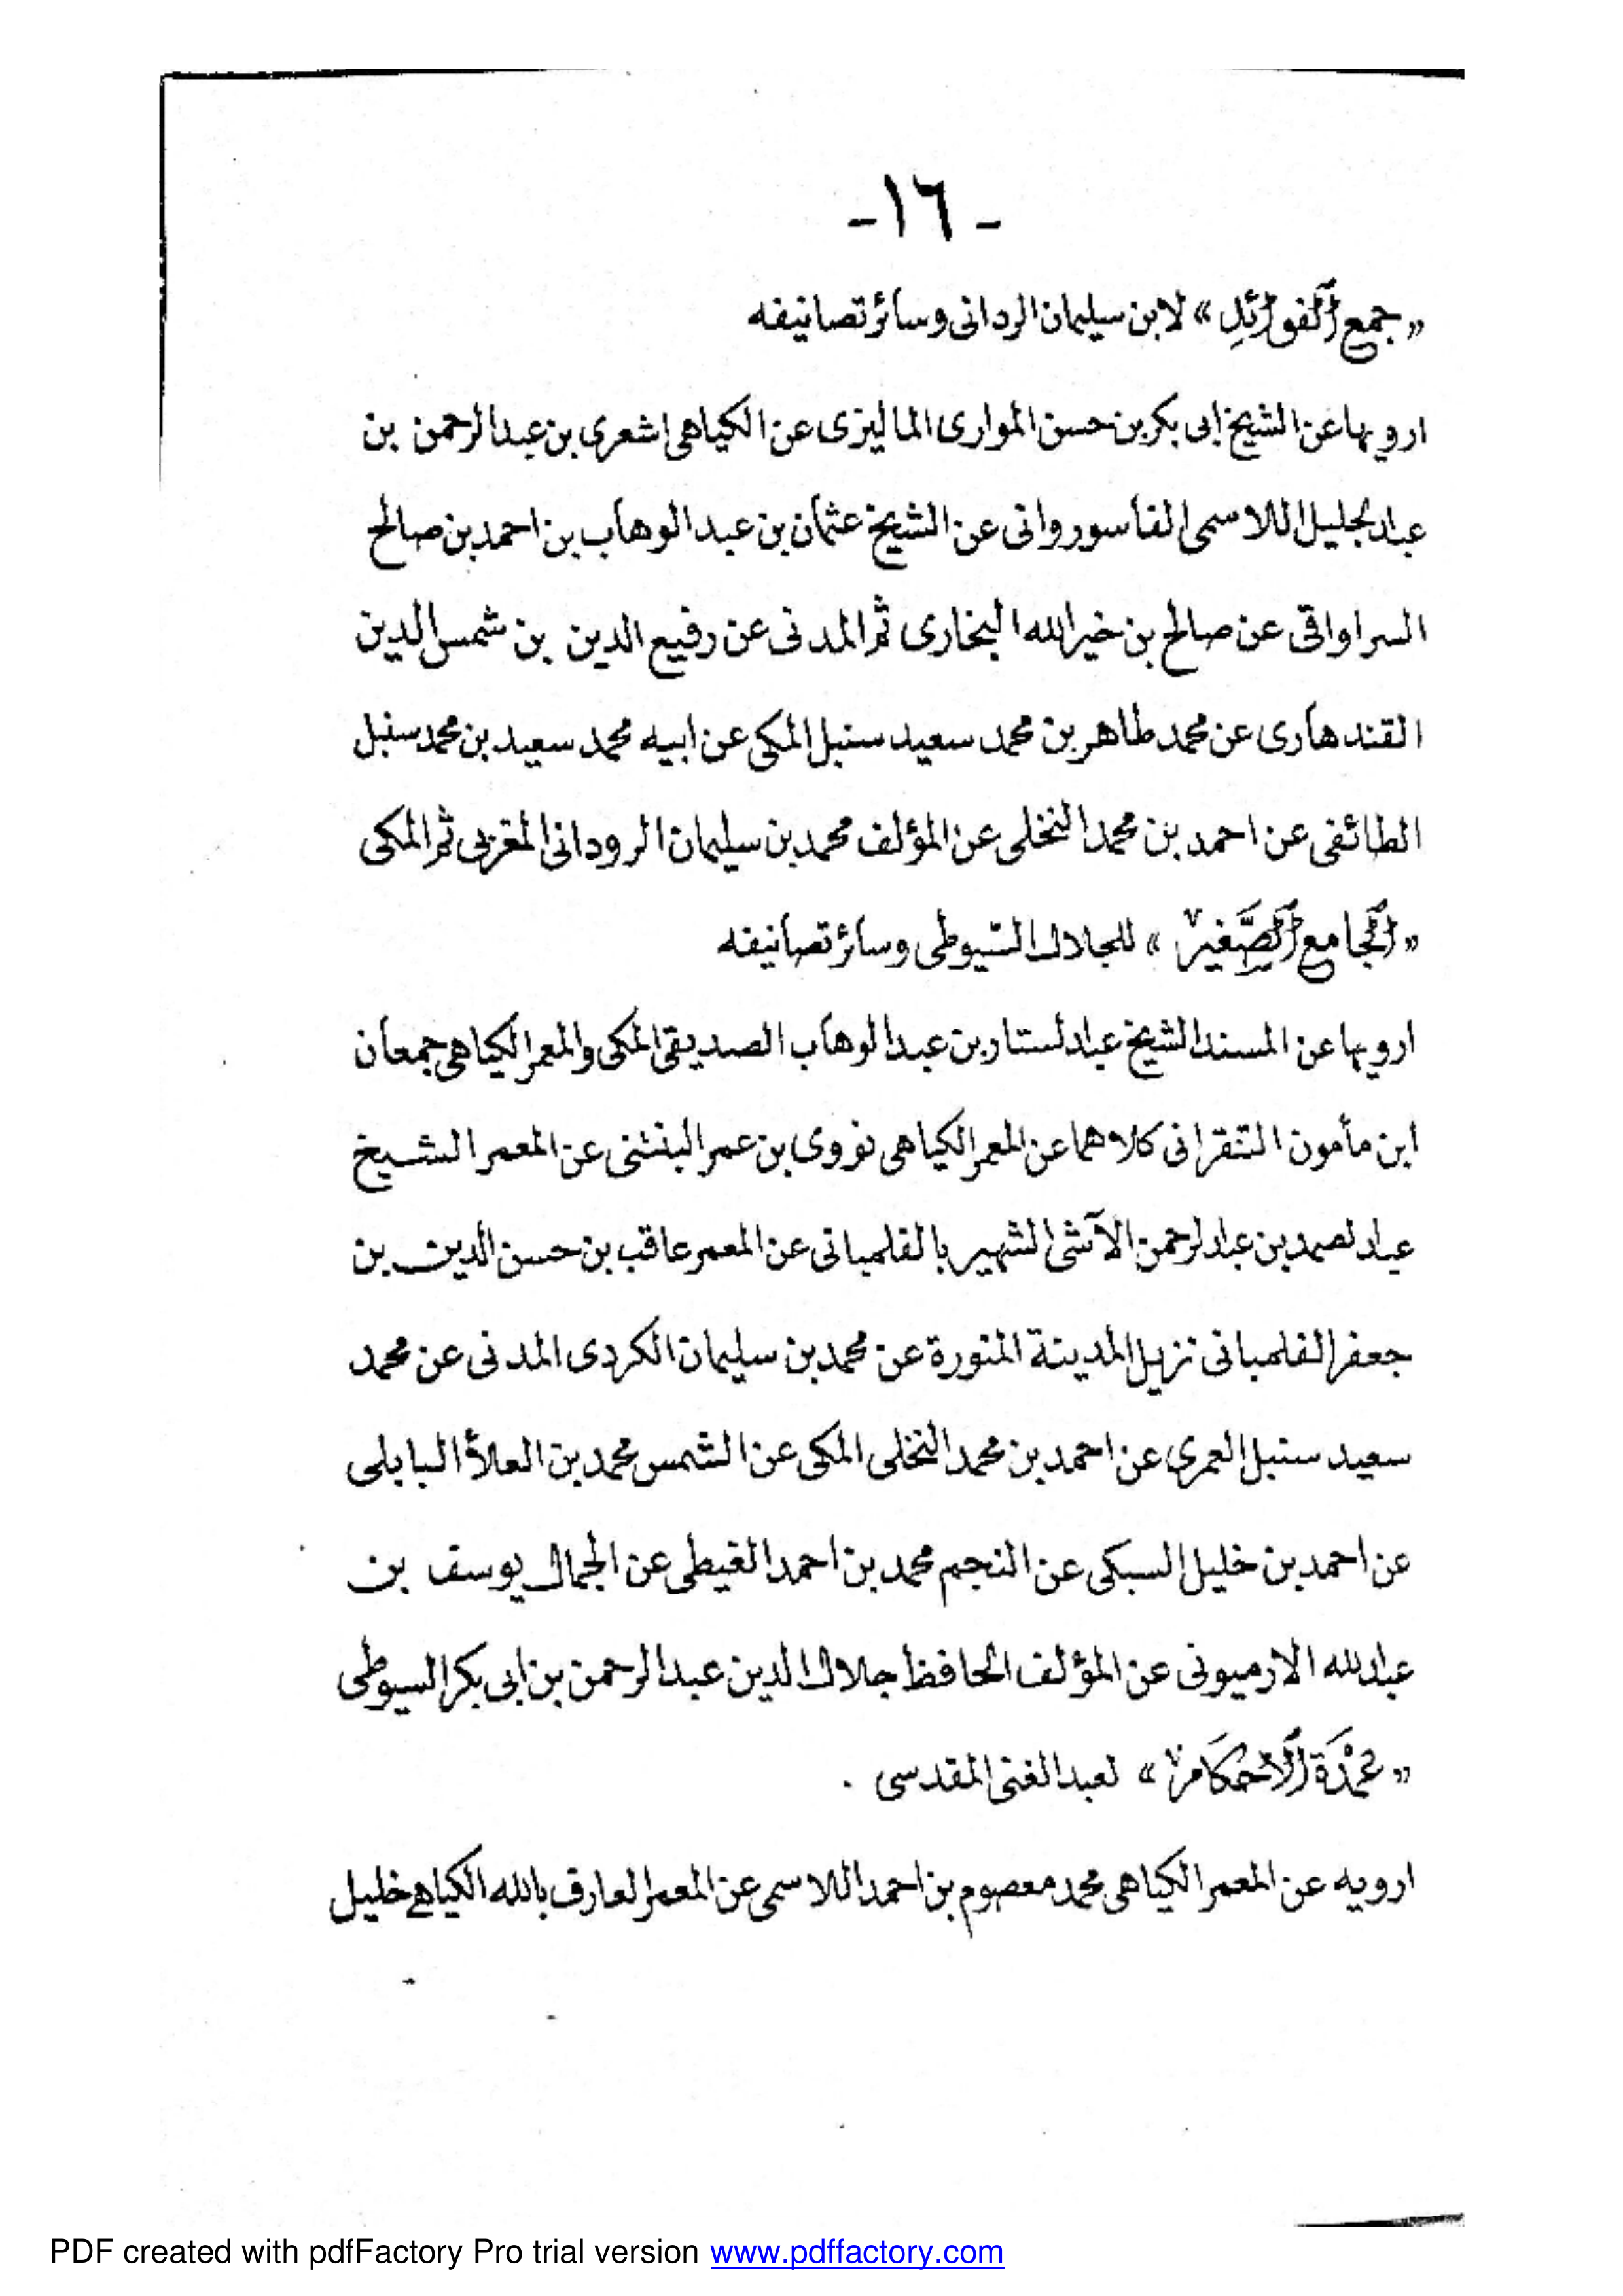 - ١٦ -
« جمع الفوائد » لابن سليمان الرداني وسائر تصانيفه
ارويها عن الشيخ ابى بكر بن حسن الموارى الماليزى عن الكياهى اشعرى بن عبد الرحمن بن
عبد الجليل اللاسمى الفاسوروانى عن الشيخ عثمان بن عبد الوهاب بن احمد بن صالح
السراواقى عن صالح بن خير الله البخارى ثم المدنى عن رفيع الدين بن شمس الدين
القندهارى عن محمد طاهر بن محمد سعيد سنبل المكى عن ابيه محمد سعيد بن محمد سنبل
الطائفى عن احمد بن محمد النخلى عن المؤلف محمد بن سليمان الرودانى المغربى ثم المكى
« اَلْجامع الصَّغِير » للجلال السيوطى وسائر تصانيفه
ارويها عن المسند الشيخ عبد الستار بن عبد الوهاب الصديقى المكى والمعمر الكياهى جمعان
ابن مأمون التنقرانى كلاهما عن المعمر الكياهى نووى بن عمر البنتنى عن المعمر الشيخ
عبد الصمد بن عبد الرحمن الآشى الشهير بالفلمبانى عن المعمر عاقب بن حسن الدين بن
جعفر الفلمبانى نزيل المدينة المنورة عن محمد بن سليمان الكردى المدنى عن محمد
سعيد سنبل العمرى عن احمد بن محمد النخلى المكى عن الشمس محمد بن العلاء البابلى
عن احمد بن خليل السبكى عن النجم محمد بن احمد الغيطى عن الجمال يوسف بن
عبد الله الارميونى عن المؤلف الحافظ جلال الدين عبد الرحمن بن ابى بكر السيوطى
« عُمْدَة الْاَحْكَام » لعبد الغنى المقدسى .
ارويه عن المعمر الكياهى محمد معصوم بن احمد اللاسمى عن المعمر العارف بالله الكياهى خليل
PDF created with pdfFactory Pro trial version www.pdffactory.com